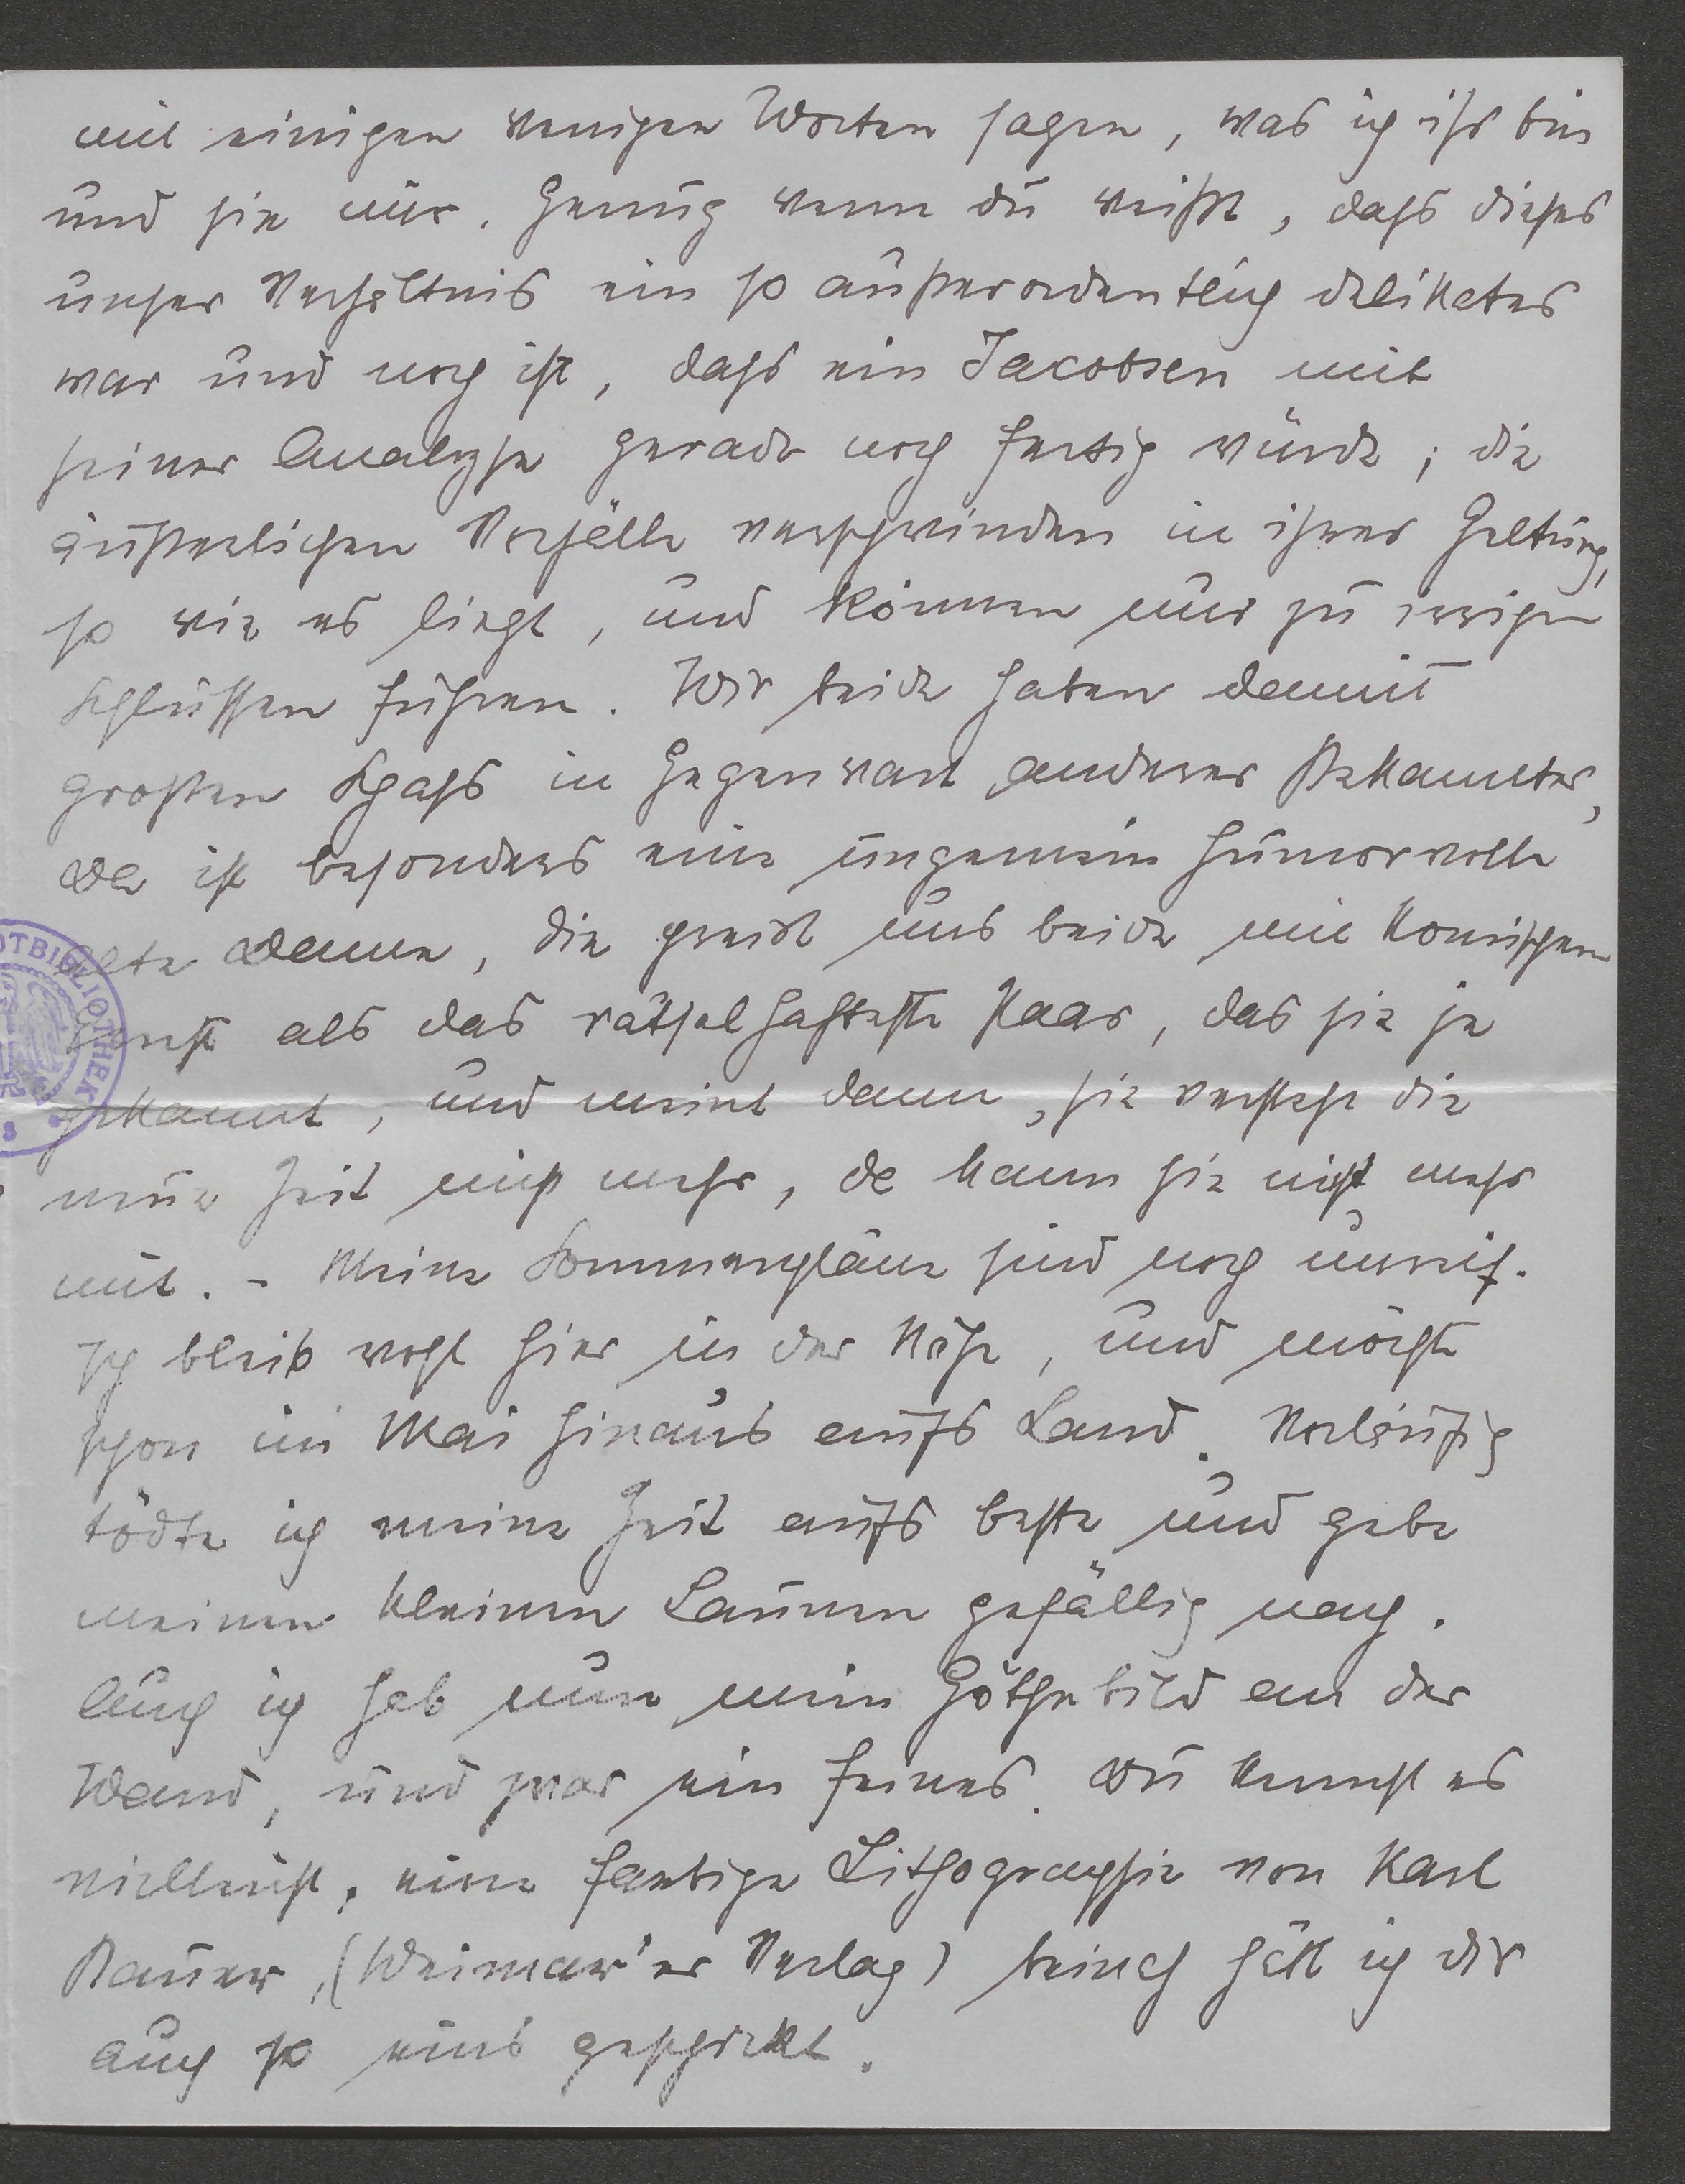 mit einigen wenigen Worten sagen, was ich ihr bin
und sie mir. Genug wenn du weißt, dass dieses
unser Verhältnis ein so außerordentlich delikates
war und noch ist, dass ein Jacobsen mit
seiner Analyse gerade noch fertig würde; die
äußerlichen Vorfälle verschwinden in ihrer Geltung,
so wie es liegt, und können nur zu irrigen
Schlüssen führen. Wir beide haben damit
großen Spass in Gegenwart anderer Bekannter,
da ist besonders eine ungemein humorvolle
alte Dame, die preist uns beide mit komischem
Ernst als das rätselhafteste Paar, das sie je
gekannt, und meint dann, sie verstehe die
neue Zeit nicht mehr, da kann sie nicht mehr
mit. – Meine Sommerpläne sind noch unreif.
Ich bleib wohl hier in der Nähe, und möchte
schon im Mai hinaus aufs Land. Vorläufig
tödte ich meine Zeit aufs beste und gebe
meinen kleinen Launen gefällig nach.
Auch ich hab nun mein Göthebild an der
Wand, und zwar ein feines. Du kennst es
vielleicht, eine farbige Lithographie von Karl
Bauer, (Weimar'er Verlag) beinah hätt ich dir
auch so eins geschickt.
OTBIBLIOTHEK